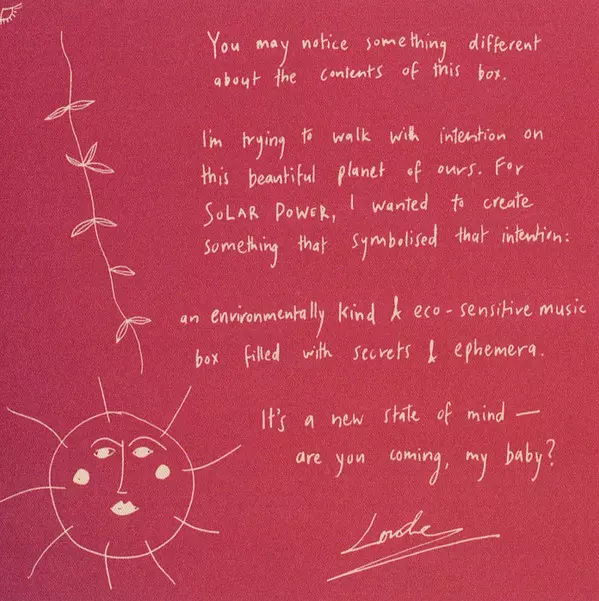 You may notice something different
about the contents of this box.
I'm trying to walk with intention on
this beautiful planet of ours. For
SOLAR POWER, I wanted to create
something that symbolised that intention:
an environmentally kind & eco-sensitive music
box filled with secrets & ephemera.
It's a new state of mind —
are you coming, my baby?
Lorde